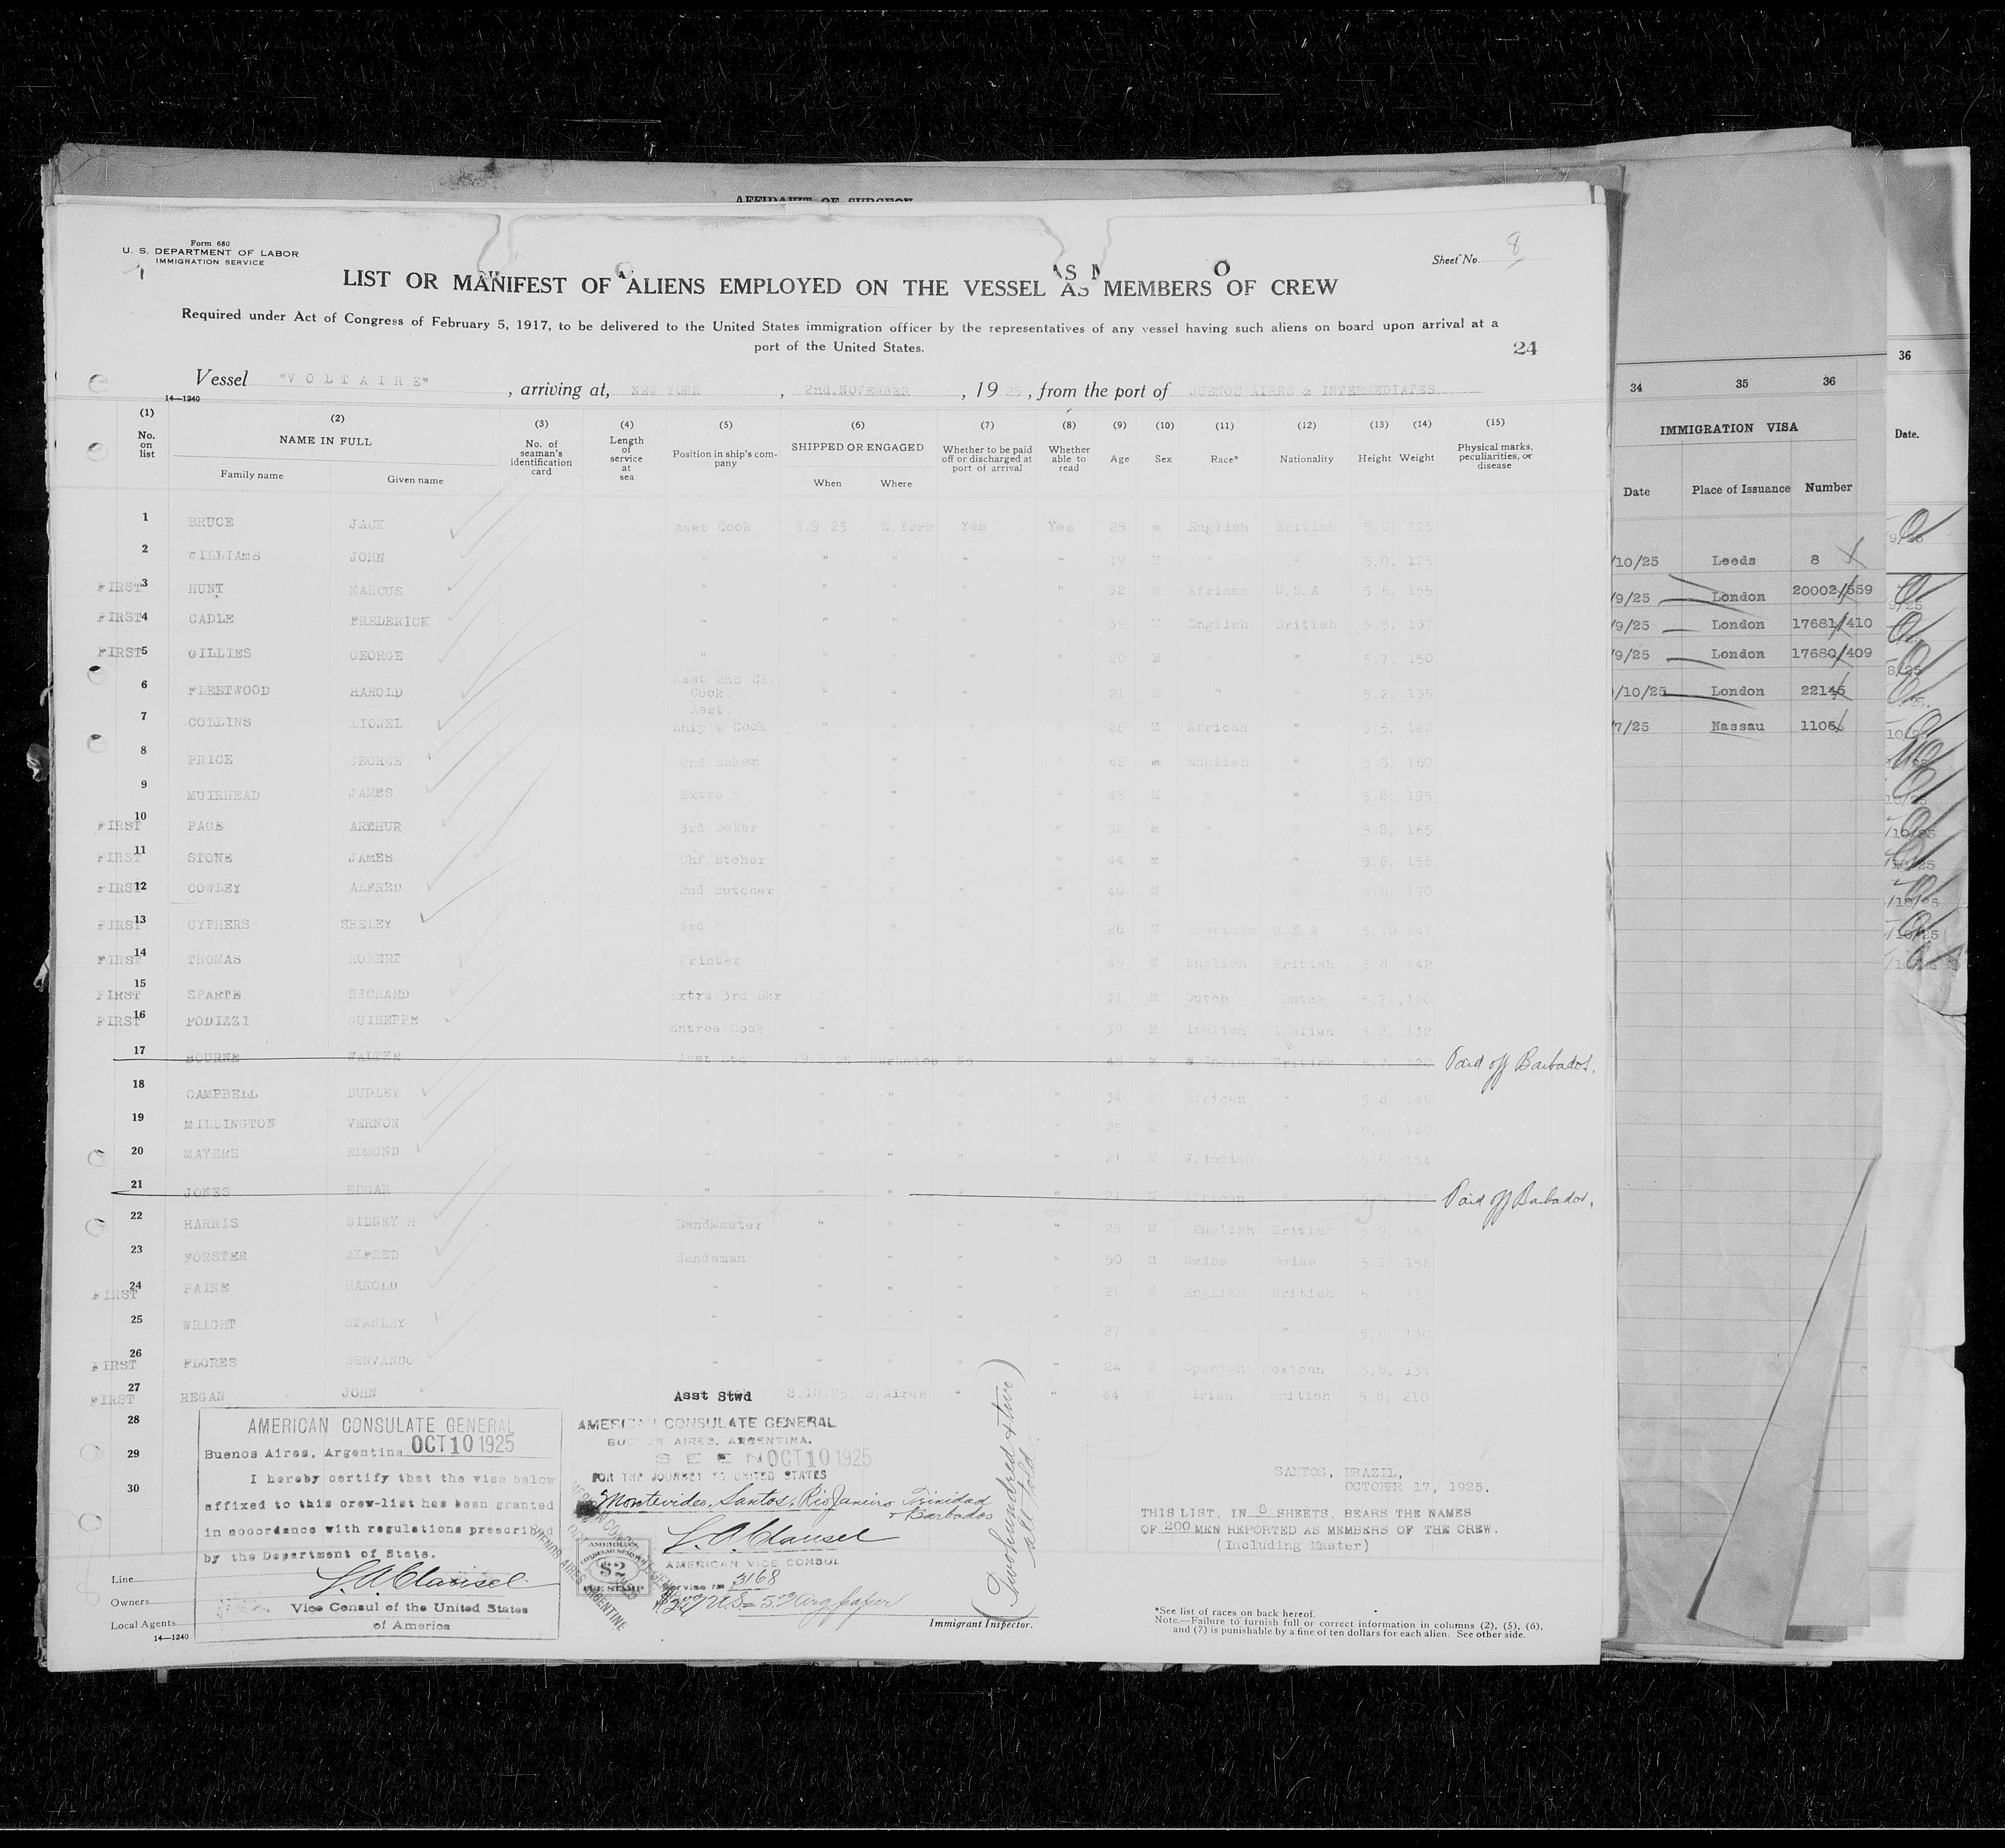 AFFIDAVIT OF SURGEON
Form 680
U. S. DEPARTMENT OF LABOR
IMMIGRATION SERVICE
Sheet No. 8
LIST OR MANIFEST OF ALIENS EMPLOYED ON THE VESSEL AS MEMBERS OF CREW
Required under Act of Congress of February 5, 1917, to be delivered to the United States immigration officer by the representatives of any vessel having such aliens on board upon arrival at a
port of the United States.
24
Vessel "VOLTAIRE", arriving at, NEW YORK, 2nd.NOVEMBER, 1925, from the port of BUENOS AIRES & INTERMEDIATES
14—1240
(1) No. on list (2) NAME IN FULL Family name Given name (3) No. of seaman's identification card (4) Length of service at sea (5) Position in ship's company (6) SHIPPED OR ENGAGED When Where (7) Whether to be paid off or discharged at port of arrival (8) Whether able to read (9) Age (10) Sex (11) Race* (12) Nationality (13) Height (14) Weight (15) Physical marks, peculiarities, or disease
1 BRUCE JACK Asst Cook 5.9.25 N.York Yes Yes 25 m English British 125
2 WILLIAMS JOHN " " " " " 19 M " " 5.0. 125
FIRST 3 HUNT MARCUS " " " " " 32 M African U.S.A 5.6. 155
FIRST 4 CADLE FREDERICK " " " " " 39 M English British 5.5. 137
FIRST 5 GILLIES GEORGE " " " " " 20 M " " 5.7. 150
6 FLEETWOOD HAROLD Asst 2nd Cl. Cook. " " " " 21 M " " 5.2. 135
7 COLLINS LIONEL Asst. Ship's Cook " " " " 26 M African " 5.5. 122
8 PRICE GEORGE 2nd Baker " " " 42 m English " 5.5. 160
9 MUIRHEAD JAMES Extra " " " " " 45 M " " 5.8. 195
FIRST 10 PAGE ARTHUR 3rd Baker " " " " 52 m " 5.8. 165
FIRST 11 STONE JAMES Chf Btcher " " " " 44 m " 5.6. 156
FIRST 12 COWLEY ALFRED 2nd Butcher " " " " 40 M 190
FIRST 13 CYPHERS SEELEY 3rd " 26 M American U.S.A 5.10. 147
FIRST 14 THOMAS ROBERT Printer 46 M English British 5.8. 242
FIRST 15 SPARTE RICHARD Extra 3rd Bkr 31 M Dutch Dutch 5.7. 160
FIRST 16 PODIZZI GUISEPPE Entree Cook " " " " 39 M Italian Italian 5.2. 132
17 BOURNE WALTER Asst Std Barbados No 43 M W Indian British 5.7. Paid off Barbados.
18 CAMPBELL DUDLEY " " " " 34 M African " 5.8. 146
19 MILLINGTON VERNON " " " " " 25 M " 140
20 MAYERS EDMOND " " " " " 21 M W. Indian 5.6. 134
21 JONES EDGAR " " " " " 21 M African Paid off Barbados.
22 HARRIS SIDNEY H BandMaster " " " " 25 M English British 5.9.
23 FORSTER ALFRED Bandsman " " " " 50 M Swiss Swiss 158
FIRST 24 PAINE HAROLD " " " " " 26 M English British
25 WRIGHT STANLEY " " " " 27 M " " 130
FIRST 26 FLORES SERVANDO " " " " " 24 M Spanish Mexican 5.8. 134
FIRST 27 REGAN JOHN Asst Stwd 8.10.25. B.Aires " " 44 M Irish British 5.8. 210
28
29
30
AMERICAN CONSULATE GENERAL
Buenos Aires, Argentina OCT 10 1925
I hereby certify that the visa below
affixed to this crew-list has been granted
in accordance with regulations prescribed
by the Department of State.
Vice Consul of the United States
of America
Line
Owners
Local Agents
14—1240
AMERICAN CONSULATE GENERAL
BUENOS AIRES, ARGENTINA.
SEEN OCT 10 1925
FOR THE JOURNEY TO UNITED STATES
Montevideo, Santos, Rio Janeiro, Trinidad
+ Barbados
AMERICAN VICE CONSUL
Service No 3168
AMERICAN
CONSULAR SERVICE
$2
FEE STAMP
BUENOS AIRES ARGENTINE
Immigrant Inspector.
(Two hundred & two
all told.)
SANTOS, BRAZIL,
OCTOBER 17, 1925.
THIS LIST, IN 8 SHEETS, BEARS THE NAMES
OF 200 MEN REPORTED AS MEMBERS OF THE CREW.
(Including Master)
*See list of races on back hereof.
Note.—Failure to furnish full or correct information in columns (2), (5), (6),
and (7) is punishable by a fine of ten dollars for each alien. See other side.
34 35 36
IMMIGRATION VISA
Date Place of Issuance Number
/10/25 Leeds 8
/9/25 London 20002/559
/9/25 London 17681/410
/9/25 London 17680/409
/10/25 London 22145
/7/25 Nassau 1106
36
Date.